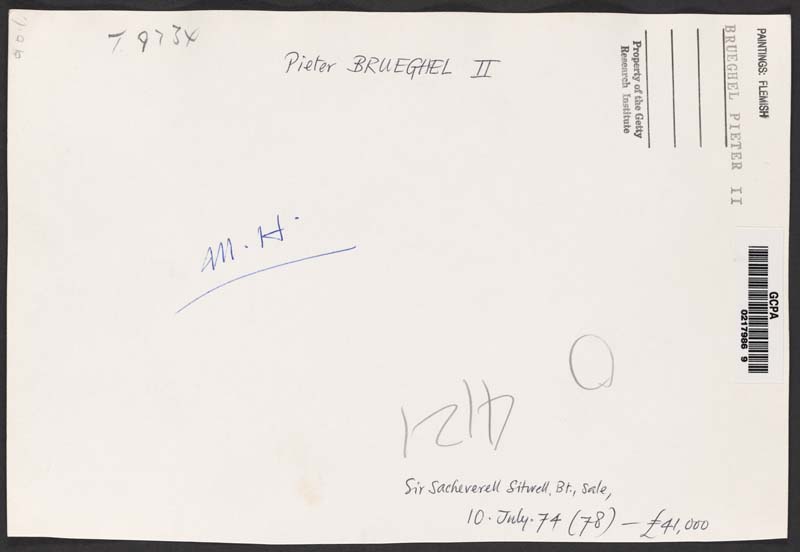 T. 9734
Pieter BRUEGHEL II
PAINTINGS: FLEMISH
BRUEGHEL PIETER II
Property of the Getty
Research Institute
GCPA
0217986 9
M. H.
Q
Sir Sacheverell Sitwell, Bt., Sale,
10. July. 74 (78) – £41,000